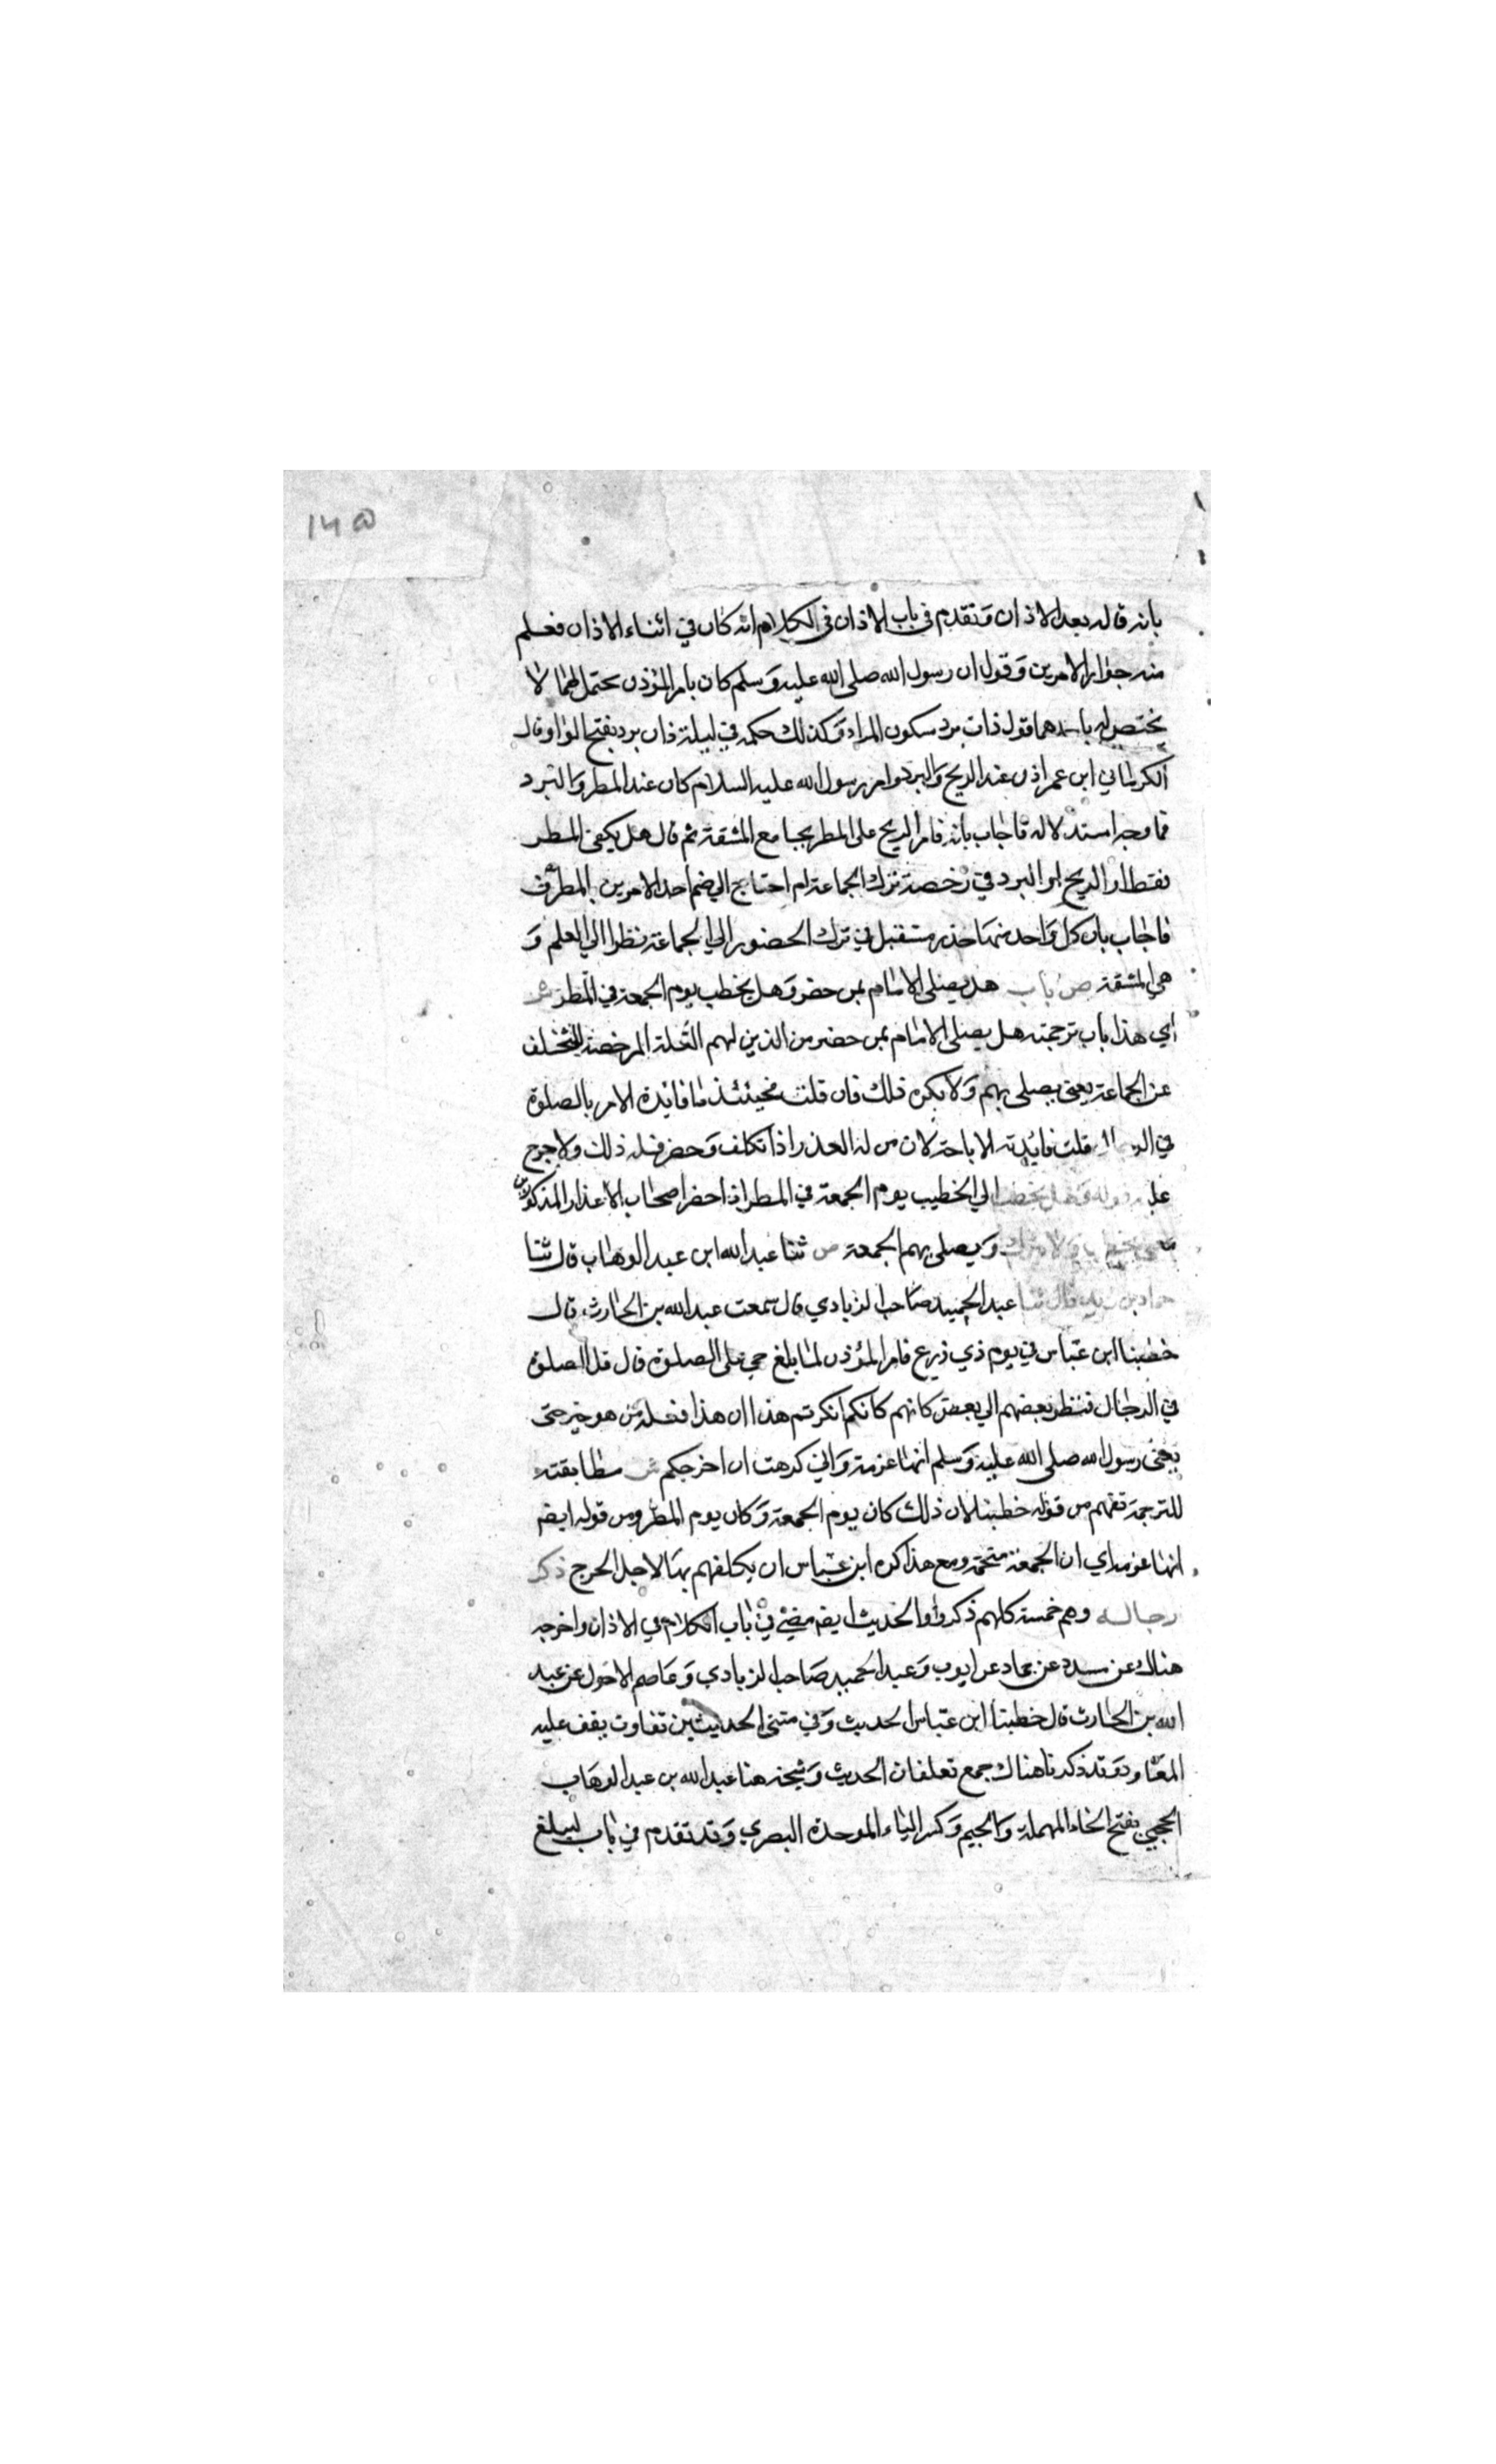 ١٢٥
بانه قاله بعد الاذان وتقدم في باب الاذان في الكلام انه كان في اثناء الاذان فعلم
منه جواز الامرين وقول ان رسول الله صلى الله عليه وسلم كان يامر المؤذن محتمل لهما لا
تختص له باحدهما قوله ذات برد بسكون الراء وكذلك حكمه في ليلة ذات برد بفتح الواو وقال
الكرماني ابن عمر اذن عند الريح والبرد وامر رسول الله عليه السلام كان عند المطر والبرد
فما وجه استدلاله فاجاب بانه قاس الريح على المطر بجامع المشقة ثم قال هل يكفي المطر
فقط او الريح او البرد في رخصة ترك الجماعة ام احتاج الي ضم احد الامرين بالمطر
فاجاب بان كل واحد منها عذر مستقل في ترك الحضور الي الجماعة نظرا الي العلم و
هي المشقة ص باب هل يصلي الامام بمن حضر وهل يخطب يوم الجمعة في المطر ش
اي هذا باب ترجمته هل يصلي الامام بمن حضر من الذين لهم العلة المرخصة للتخلف
عن الجماعة يعني يصلي بهم ولا يكره ذلك فان قلت فحينئذ ما فائدة الامر بالصلوة
في قلت فائدته الاباحة لان من له العذر اذا تكلف وحضر فله ذلك ولا حرج
عليه قوله وهل يخطب اي الخطيب يوم الجمعة في المطر اذا حضر اصحاب الاعذار المذكورين
ويصلي بهم الجمعة ص ثنا عبد الله ابن عبد الوهاب قال ثنا
حماد بن زيد قال ثنا عبد الحميد صاحب الزيادي قال سمعت عبد الله بن الحارث قال
خطبنا ابن عباس في يوم ذي رزغ فامر المؤذن لما بلغ حي على الصلوة قال قل الصلوة
في الرحال فنظر بعضهم الي بعض كانهم كانكم انكرتم هذا ان هذا فعله من هو خير مني
يعني رسول الله صلى الله عليه وسلم انها عزمة واني كرهت ان اخرجكم ش مطابقته
للترجمة تفهم من قوله خطبنا لان ذلك كان يوم الجمعة وكان يوم المطر ومن قوله ايضا
انها عزمة اي ان الجمعة متحتمة ومع هذا كره ابن عباس ان يكلفهم بها لاجل الحرج ذكر
رجاله وهم خمسة كلهم ذكروا والحديث ايضا مضي في باب الكلام في الاذان واخرجه
هناك عن مسدد عن حماد عن ايوب وعبد الحميد صاحب الزيادي وعاصم الاحول عن عبد
الله بن الحارث قال خطبنا ابن عباس الحديث وفي متني الحديثين تفاوت يقف عليه
المعاود وقد ذكرنا هناك جمع تعلقات الحديث وشيخه هنا عبد الله بن عبد الوهاب
الحجبي بفتح الحاء المهملة والجيم وكسر الباء الموحدة البصري وقد تقدم في باب ليبلغ